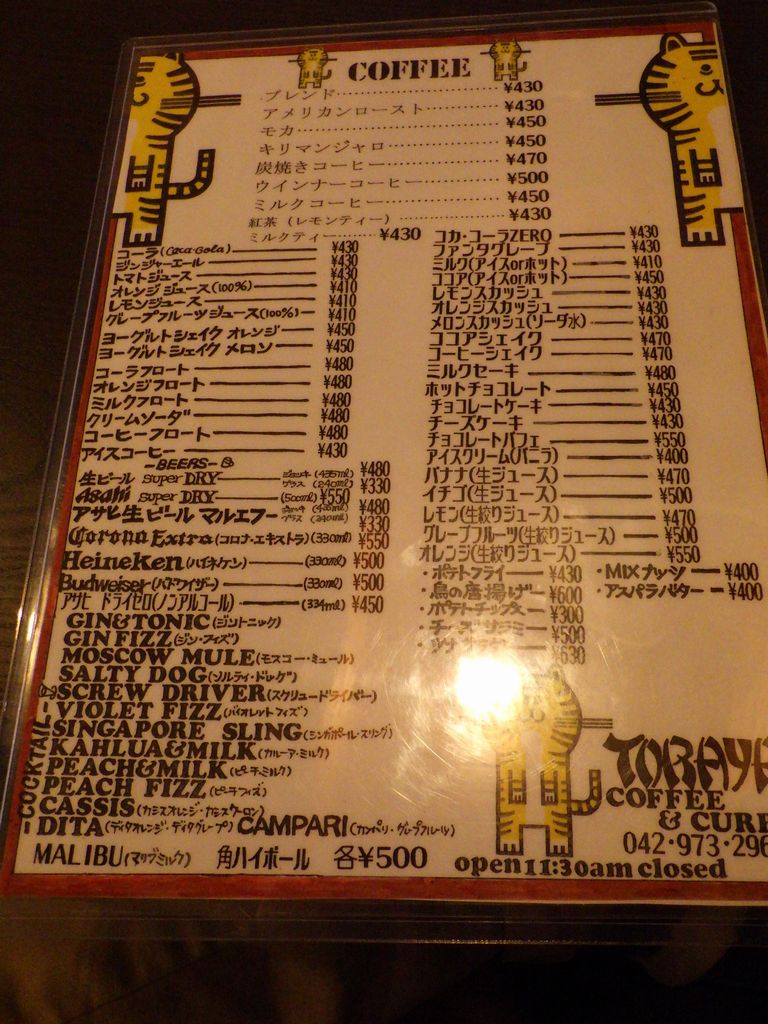 COFFEE
ブレンド ¥430
アメリカンロースト ¥430
モカ ¥450
キリマンジャロ ¥450
炭焼きコーヒー ¥470
ウインナーコーヒー ¥500
ミルクコーヒー ¥450
紅茶 (レモンティー) ¥430
ミルクティー ¥430
コーラ(Coca-Cola) ¥430
ジンジャーエール ¥430
トマトジュース ¥430
オレンジジュース(100%) ¥410
レモンジュース ¥410
グレープフルーツジュース(100%) ¥410
ヨーグルトシェイク オレンジ ¥450
ヨーグルトシェイク メロン ¥450
コーラフロート ¥480
オレンジフロート ¥480
ミルクフロート ¥480
クリームソーダ ¥480
コーヒーフロート ¥480
アイスコーヒー ¥430
-BEERS-
生ビール Super DRY ジョッキ(435ml) ¥480
グラス(240ml) ¥330
Asahi Super DRY (500ml) ¥550
アサヒ生ビール マルエフ ジョッキ(435ml) ¥480
グラス(240ml) ¥330
Corona Extra(コロナ・エキストラ)(330ml) ¥550
Heineken(ハイネケン) (330ml) ¥500
Budweiser(バドワイザー) (330ml) ¥500
アサヒ ドライゼロ(ノンアルコール) (334ml) ¥450
-COCKTAIL-
GIN&TONIC(ジントニック)
GIN FIZZ(ジン・フィズ)
MOSCOW MULE(モスコー・ミュール)
SALTY DOG(ソルティ・ドッグ)
SCREW DRIVER(スクリュードライバー)
VIOLET FIZZ(バイオレットフィズ)
SINGAPORE SLING(シンガポール・スリング)
KAHLUA&MILK(カルーア・ミルク)
PEACH&MILK(ピーチ・ミルク)
PEACH FIZZ(ピーチフィズ)
CASSIS(カシスオレンジ・カシスウーロン)
DITA(ディタオレンジ・ディタグレープ) CAMPARI(カンパリ・グレープフルーツ)
MALIBU(マリブミルク) 角ハイボール 各¥500
コカ・コーラZERO ¥430
ファンタグレープ ¥430
ミルク(アイスorホット) ¥410
ココア(アイスorホット) ¥450
レモンスカッシュ ¥430
オレンジスカッシュ ¥430
メロンスカッシュ(ソーダ水) ¥430
ココアシェイク ¥470
コーヒーシェイク ¥470
ミルクセーキ ¥480
ホットチョコレート ¥450
チョコレートケーキ ¥430
チーズケーキ ¥430
チョコレートパフェ ¥550
アイスクリーム(バニラ) ¥400
バナナ(生ジュース) ¥470
イチゴ(生ジュース) ¥500
レモン(生絞りジュース) ¥470
グレープフルーツ(生絞りジュース) ¥500
オレンジ(生絞りジュース) ¥550
・ポテトフライ ¥430
・鳥の唐揚げ ¥600
・ポテトチップス ¥300
・チーズサラミ ¥500
¥630
・MIXナッツ ¥400
・アスパラバター ¥400
COFFEE
&
042・973・296
open11:30am closed